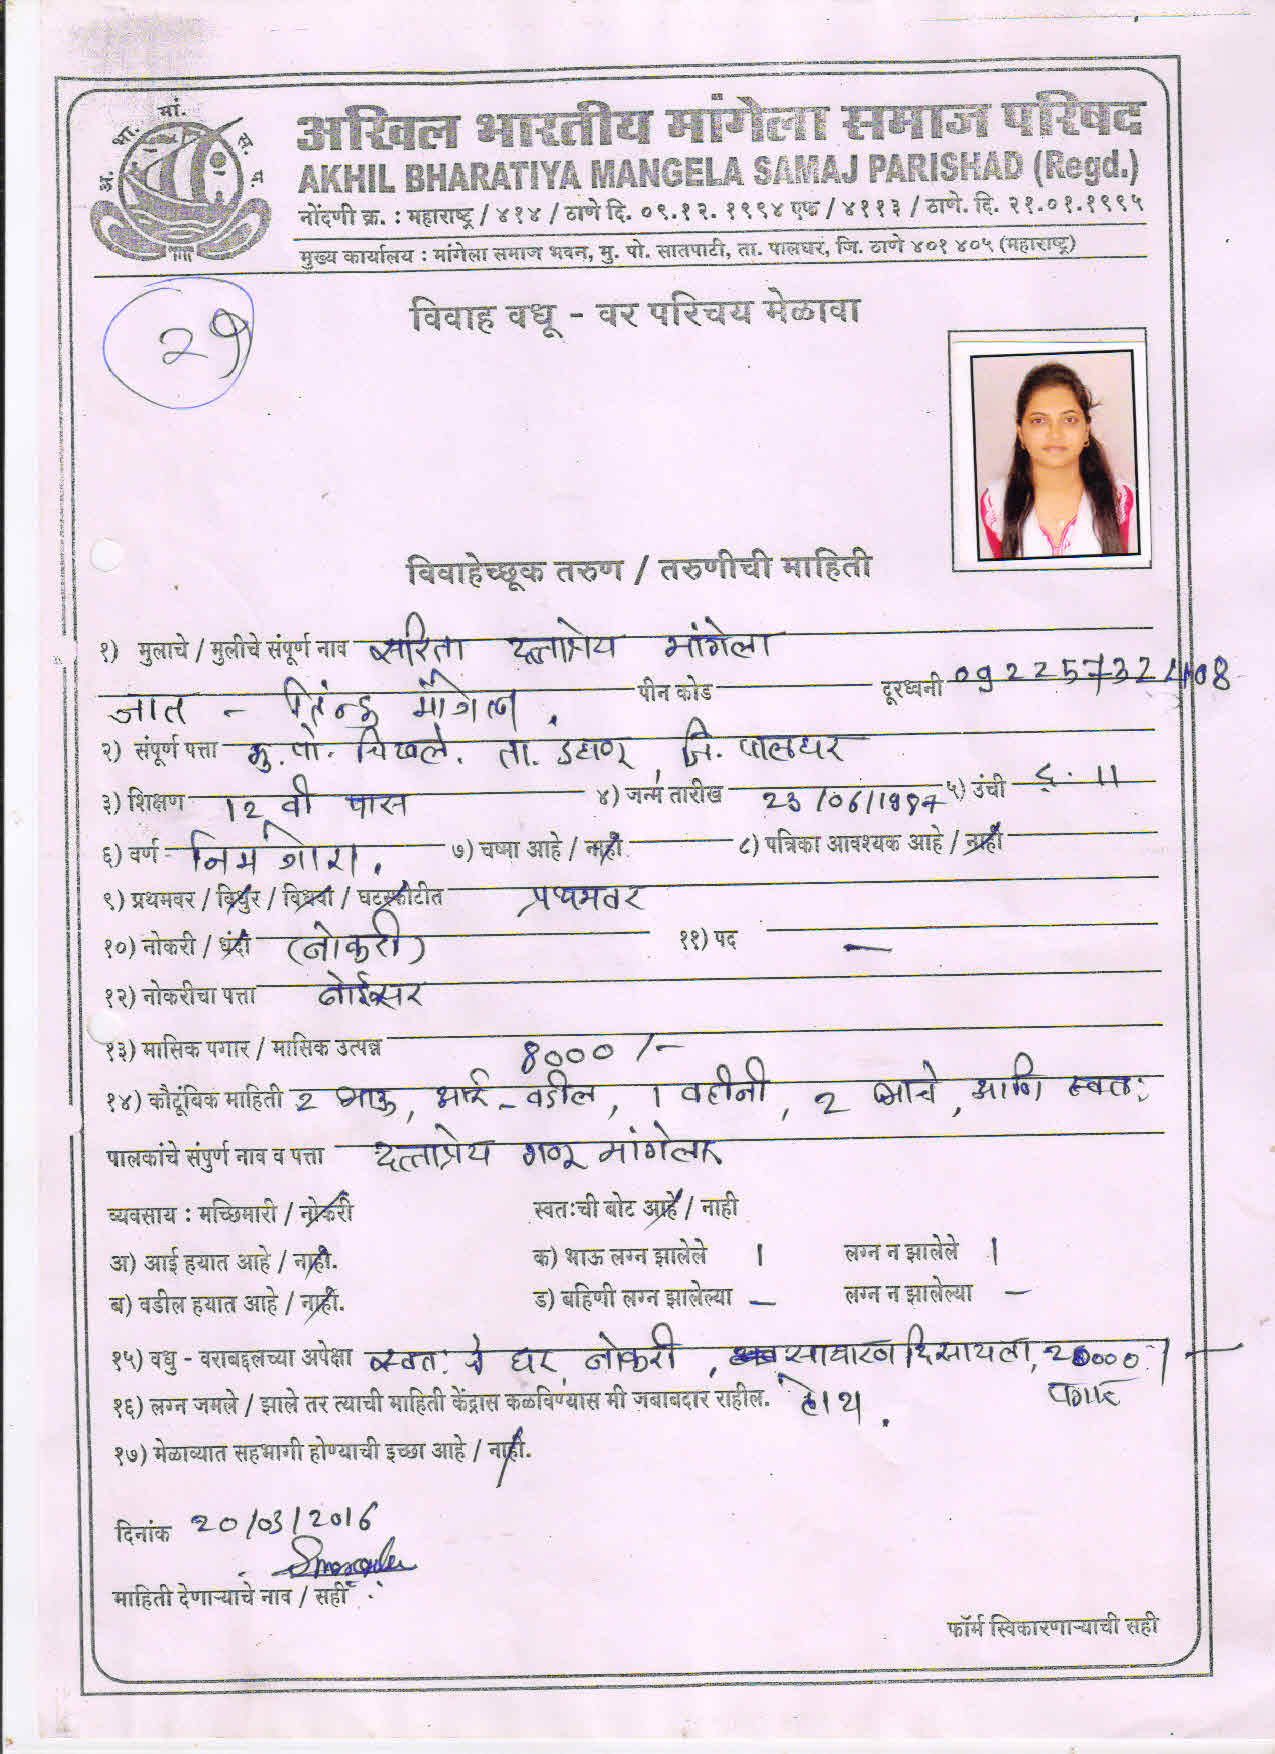 अ. भा. मां. स. प.
अखिल भारतीय मांगेला समाज परिषद
AKHIL BHARATIYA MANGELA SAMAJ PARISHAD (Regd.)
नोंदणी क्र. : महाराष्ट्र / ४१४ / ठाणे दि. ०९.१२. १९९४ एफ / ४११३ / ठाणे. दि. २१.०१.१९९५
मुख्य कार्यालय : मांगेला समाज भवन, मु. पो. सातपाटी, ता. पालघर, जि. ठाणे ४०१ ४०५ (महाराष्ट्र)
विवाह वधू - वर परिचय मेळावा
विवाहेच्छूक तरुण / तरुणीची माहिती
१) मुलाचे / मुलीचे संपूर्ण नाव सरिता दत्तात्रेय मांगेला
जात - मांगेला. पीन कोड दूरध्वनी
२) संपूर्ण पत्ता मु. पो. चिखले. ता. डहाणू, जि. पालघर
३) शिक्षण 12 वी पास ४) जन्म तारीख 23/06/1997 ५) उंची ५. 11
६) वर्ण - निमगोरा. ७) चष्मा आहे / नाही ८) पत्रिका आवश्यक आहे / नाही
९) प्रथमवर / विधुर / विधवा / घटस्फोटीत प्रथमवर
१०) नोकरी / धंदा (नोकरी) ११) पद —
१२) नोकरीचा पत्ता बोईसर
१३) मासिक पगार / मासिक उत्पन्न 8000 /-
१४) कौटूंबिक माहिती 2 भाऊ, आई - वडील, 1 वहीनी, 2 भाचे, आणि स्वतः
पालकांचे संपुर्ण नाव व पत्ता दत्तात्रेय मांगेला
व्यवसाय : मच्छिमारी / नोकरी स्वतःची बोट आहे / नाही
अ) आई हयात आहे / नाही. क) भाऊ लग्न झालेले 1 लग्न न झालेले 1
ब) वडील हयात आहे / नाही. ड) बहिणी लग्न झालेल्या — लग्न न झालेल्या —
१५) वधु - वराबद्दलच्या अपेक्षा स्वतः चे घर, नोकरी, साधारण दिसायला, 20000/-
पगार
१६) लग्न जमले / झाले तर त्याची माहिती केंद्रास कळविण्यास मी जबाबदार राहील. होय.
१७) मेळाव्यात सहभागी होण्याची इच्छा आहे / नाही.
दिनांक 20/03/2016
माहिती देणाऱ्याचे नाव / सही :
फॉर्म स्विकारणाऱ्याची सही